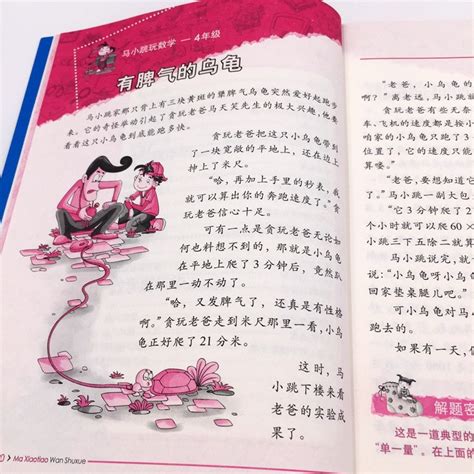 马小跳玩数学 — 4年级
有脾气的乌龟
马小跳家那只背上有三块黄斑的犟脾气乌龟突然爱好起跑步
来。它的奇怪举动引起了贪玩老爸马天笑先生的极大兴趣,他要
看看这只小乌龟到底能跑多快。
贪玩老爸把这只小乌龟带到
了一块宽敞的平地上,还在边上
摔上了米尺。
“哈,再加上手里的秒表,我
就可以算出你的奔跑速度了。”
贪玩老爸信心十足。
可有一点是贪玩老爸无论如
何也料想不到的,那就是小乌龟
在平地上爬了3分钟后,竟然趴
在那里一动不动了。
“哈,又发脾气了,还真是有性格
啊。”贪玩老爸走到米尺那里一看,小乌
龟正好爬了21分米。
这时,马
小跳下楼来看
老爸的实验成
果了。
Ma Xiaotiao Wan Shuxue
“老爸,小
啊?”离老远,马
老爸有些无
车、飞机的速度都是按小
咱家的小乌龟只跑了3
位置了。它的速度只能
算喽。”
“老爸,要想知道它
了。”马小跳一副大包
“它3分钟爬了
小时就可以爬60×
小跳三下五除二就算
马小跳说完,就
说:“小乌龟呀小乌
回家垫桌腿儿吧。”
可小乌龟对马
跑去的。
如果有一天,
解题密
这是一道典型的
“单一量”。在上面的